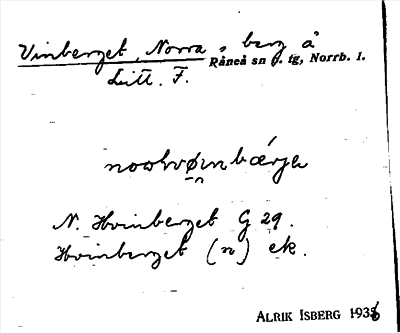 Vinberget, Norra, berg å
Råneå sn o. tg, Norrb. l.
Litt. F.
N. Hvinberget G 29.
Hvinberget (n) ek.
ALRIK ISBERG 1936